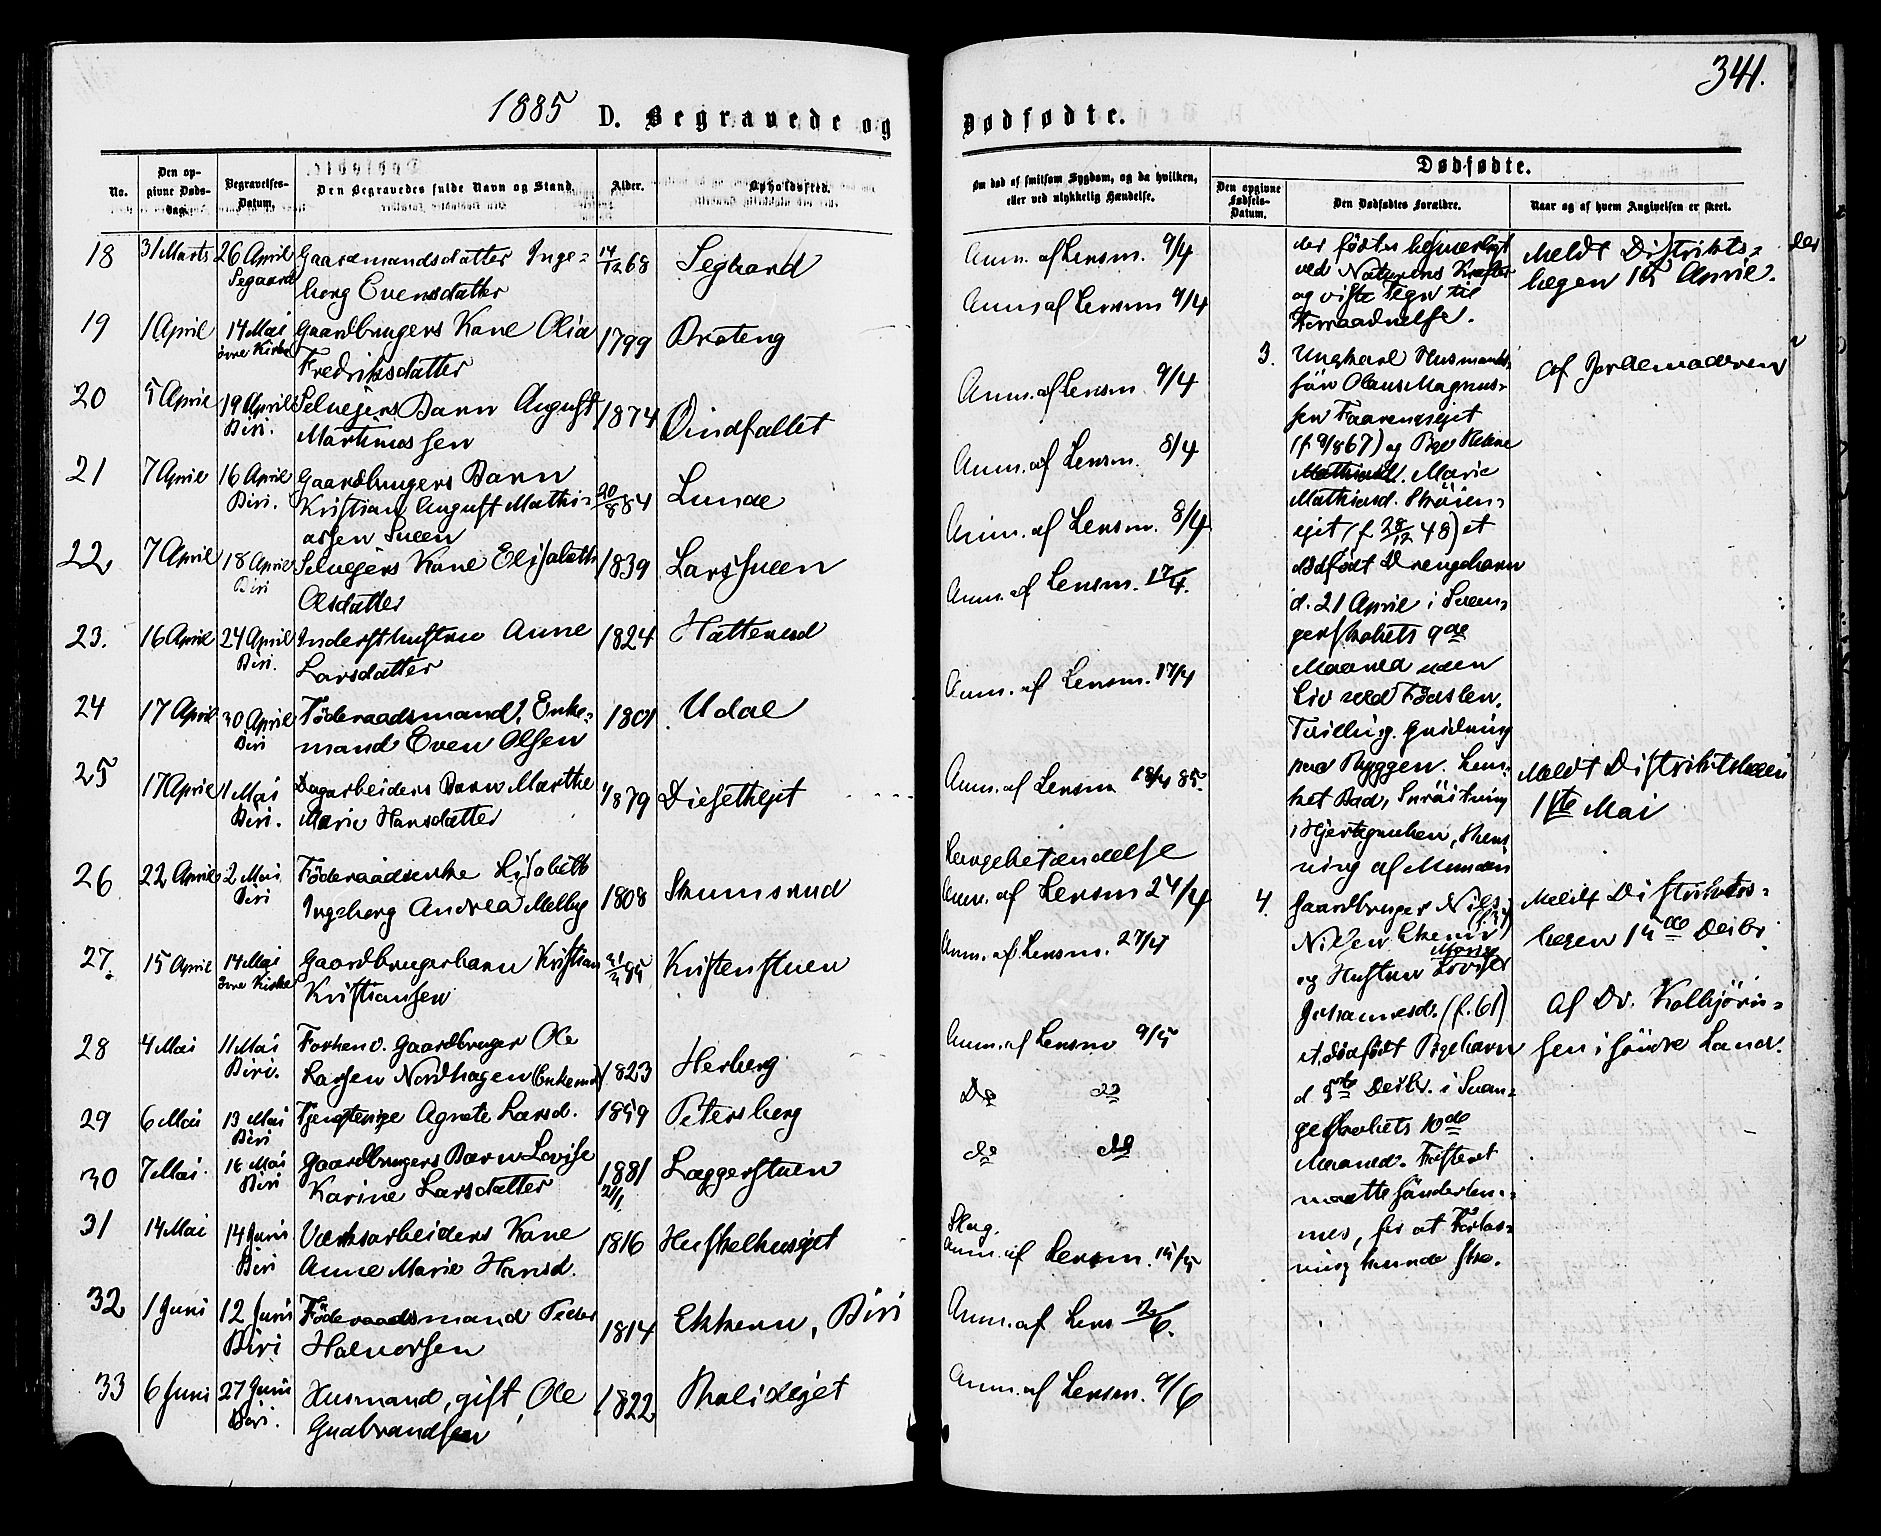 341.
1885 D. Begravede og Dødfødte.
No.
Den opgivne Dødsdag.
Begravelses-Datum.
Den Begravedes fulde Navn og Stand.
Alder.
Opholdssted.
Om død af smitsom Sygdom, og da hvilken, eller ved ulykkelig Hændelse.
Dødfødte.
Den opgivne Fødsels-Datum.
Den Dødfødtes Forældre.
Naar og af hvem Angivelsen er skeet.
18 31 Marts 26 April Gaardmandsdatter Inge= 14/12 68 Seghard
Segaard berg Evensdatter
19 1 April 14 Mai Gaardbrugers Kone Olia 1799 Brateng
övre Kirke Fredriksdatter
20 5 April 19 April Selvejers Barn August 1874 Vindfallet
Biri. Martinussen
21 7 April 16 April Gaardbrugers Barn 20/8 84 Lunde
Biri. Kristian August Mathi=
assen Sveen
22 7 April 18 April Selvejers Kone Elisabeth 1839 Larssveen
Biri Olsdatter
23. 16 April 24 April Indersthustru Anne 1824 Hatterud
Biri. Larsdatter
24 17 April 30 April Föderaadsmand, Enke= 1801 Udal
Biri mand Even Olsen
25 17 April 1 Mai Dagarbeiders Barn Marthe 1879 Diesethejet
Biri. Marie Hansdatter
26 22 April 2 Mai Föderaadsenke Lisabeth 1808 Skumsrud
Biri Ingeborg Andrea Melby
27. 15 April 14 Mai Gaardbrugerbarn Kristian Kristenstuen
övre Kirke Kristiansen
28 4 Mai 11 Mai Forhenv. Gaardbruger Ole 1823 Herberg
Biri. Larsen Nordhagen Enkemd
29 6 Mai 13 Mai Tjenestepige Agnete Larsd. 1859 Petersberg
Biri
30 7 Mai. 16 Mai Gaardbrugers Barn Lovise 1881 Læggerstuen
Biri Karine Larsdatter 21/1
31 14 Mai 14 Juni Værksarbeiders Kone 1816 Huskelhusejet
Biri Anne Marie Hansd.
32 1 Juni 12 Juni Föderaadsmand Peder 1814 Ekkern, Biri
Biri Halvorsen
33 6 Juni 27 Juni Husmand, gift, Ole 1822
Biri. Gudbrandsen
Anm. af Lensm. 9/4
Anm af Lensm 9/4
Anm. af Lensm. 9/4
Anm. af Lensm. 8/4
Anm. af Lensm. 8/4
Anm. af Lensm. 17/4.
Anm. af Lensm. 17/4
Anm. af Lensm 18/4 85.
Lungebetændelse
Anm. af Lensm 24/4
Anm. af Lensm. 27/4
Anm. af Lensm 9/5
Do do
do do
Slag.
Anm. af Lensm. 15/5
Anm. af Lens 2/6.
Anm. af Lensm. 9/6
der födtes
ved Naturens Kræfter
og viste Tegn til
Forraadnelse.
3. Ungkarl Husmands=
sön Olaus Magnus=
sen
(f. 9/867) og Pige
Marie
Mathiasd.
ejet (f. 28/12 48) et
dødfødt Drengebarn
d. 21 April i Svan=
gerskabets 9de
Maaned uden
Liv ved Födslen.
Tvilling. Gnidning
paa Ryggen.
ket Bad, Spröitning
i Hjertegruben, Rens
ning af Munden
4. Gaardbruger Nils
og Hustru Marie Lovise
Johannesd. (f. 61)
et dødfødt Pigebarn
d 5te Decbr. i Svan=
gerskabets 10de
Maaned. Fosteret
maatte sönderlem=
mes, før at Forløs=
ning kunde ske.
Meldt Distrikts=
lægen 15 April.
af Jordemoderen
Meldt Distriktslægen
1te Mai
Meldt Distrikts=
lægen 15de Decbr
af Dr. Kolbjörn=
sen i söndre Land.